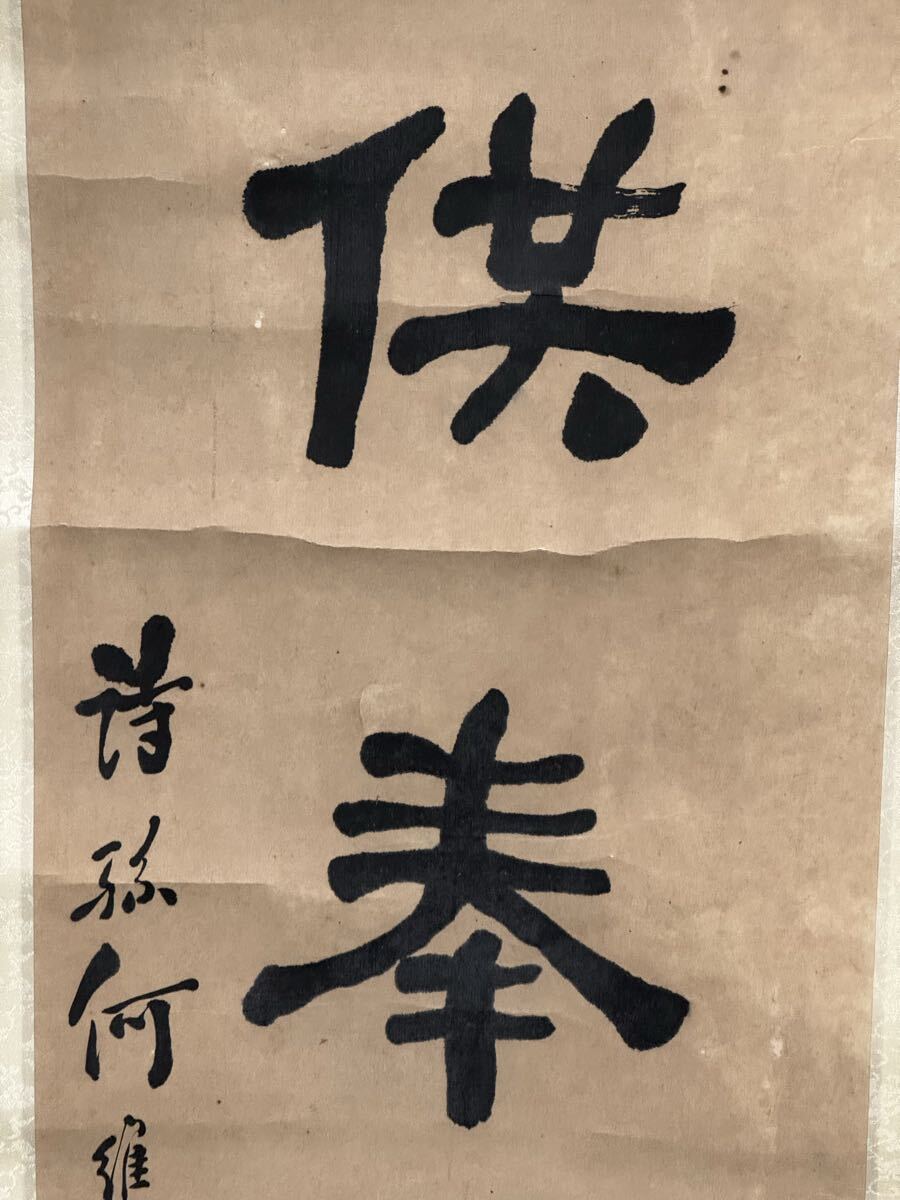 供奉
詩孫何維